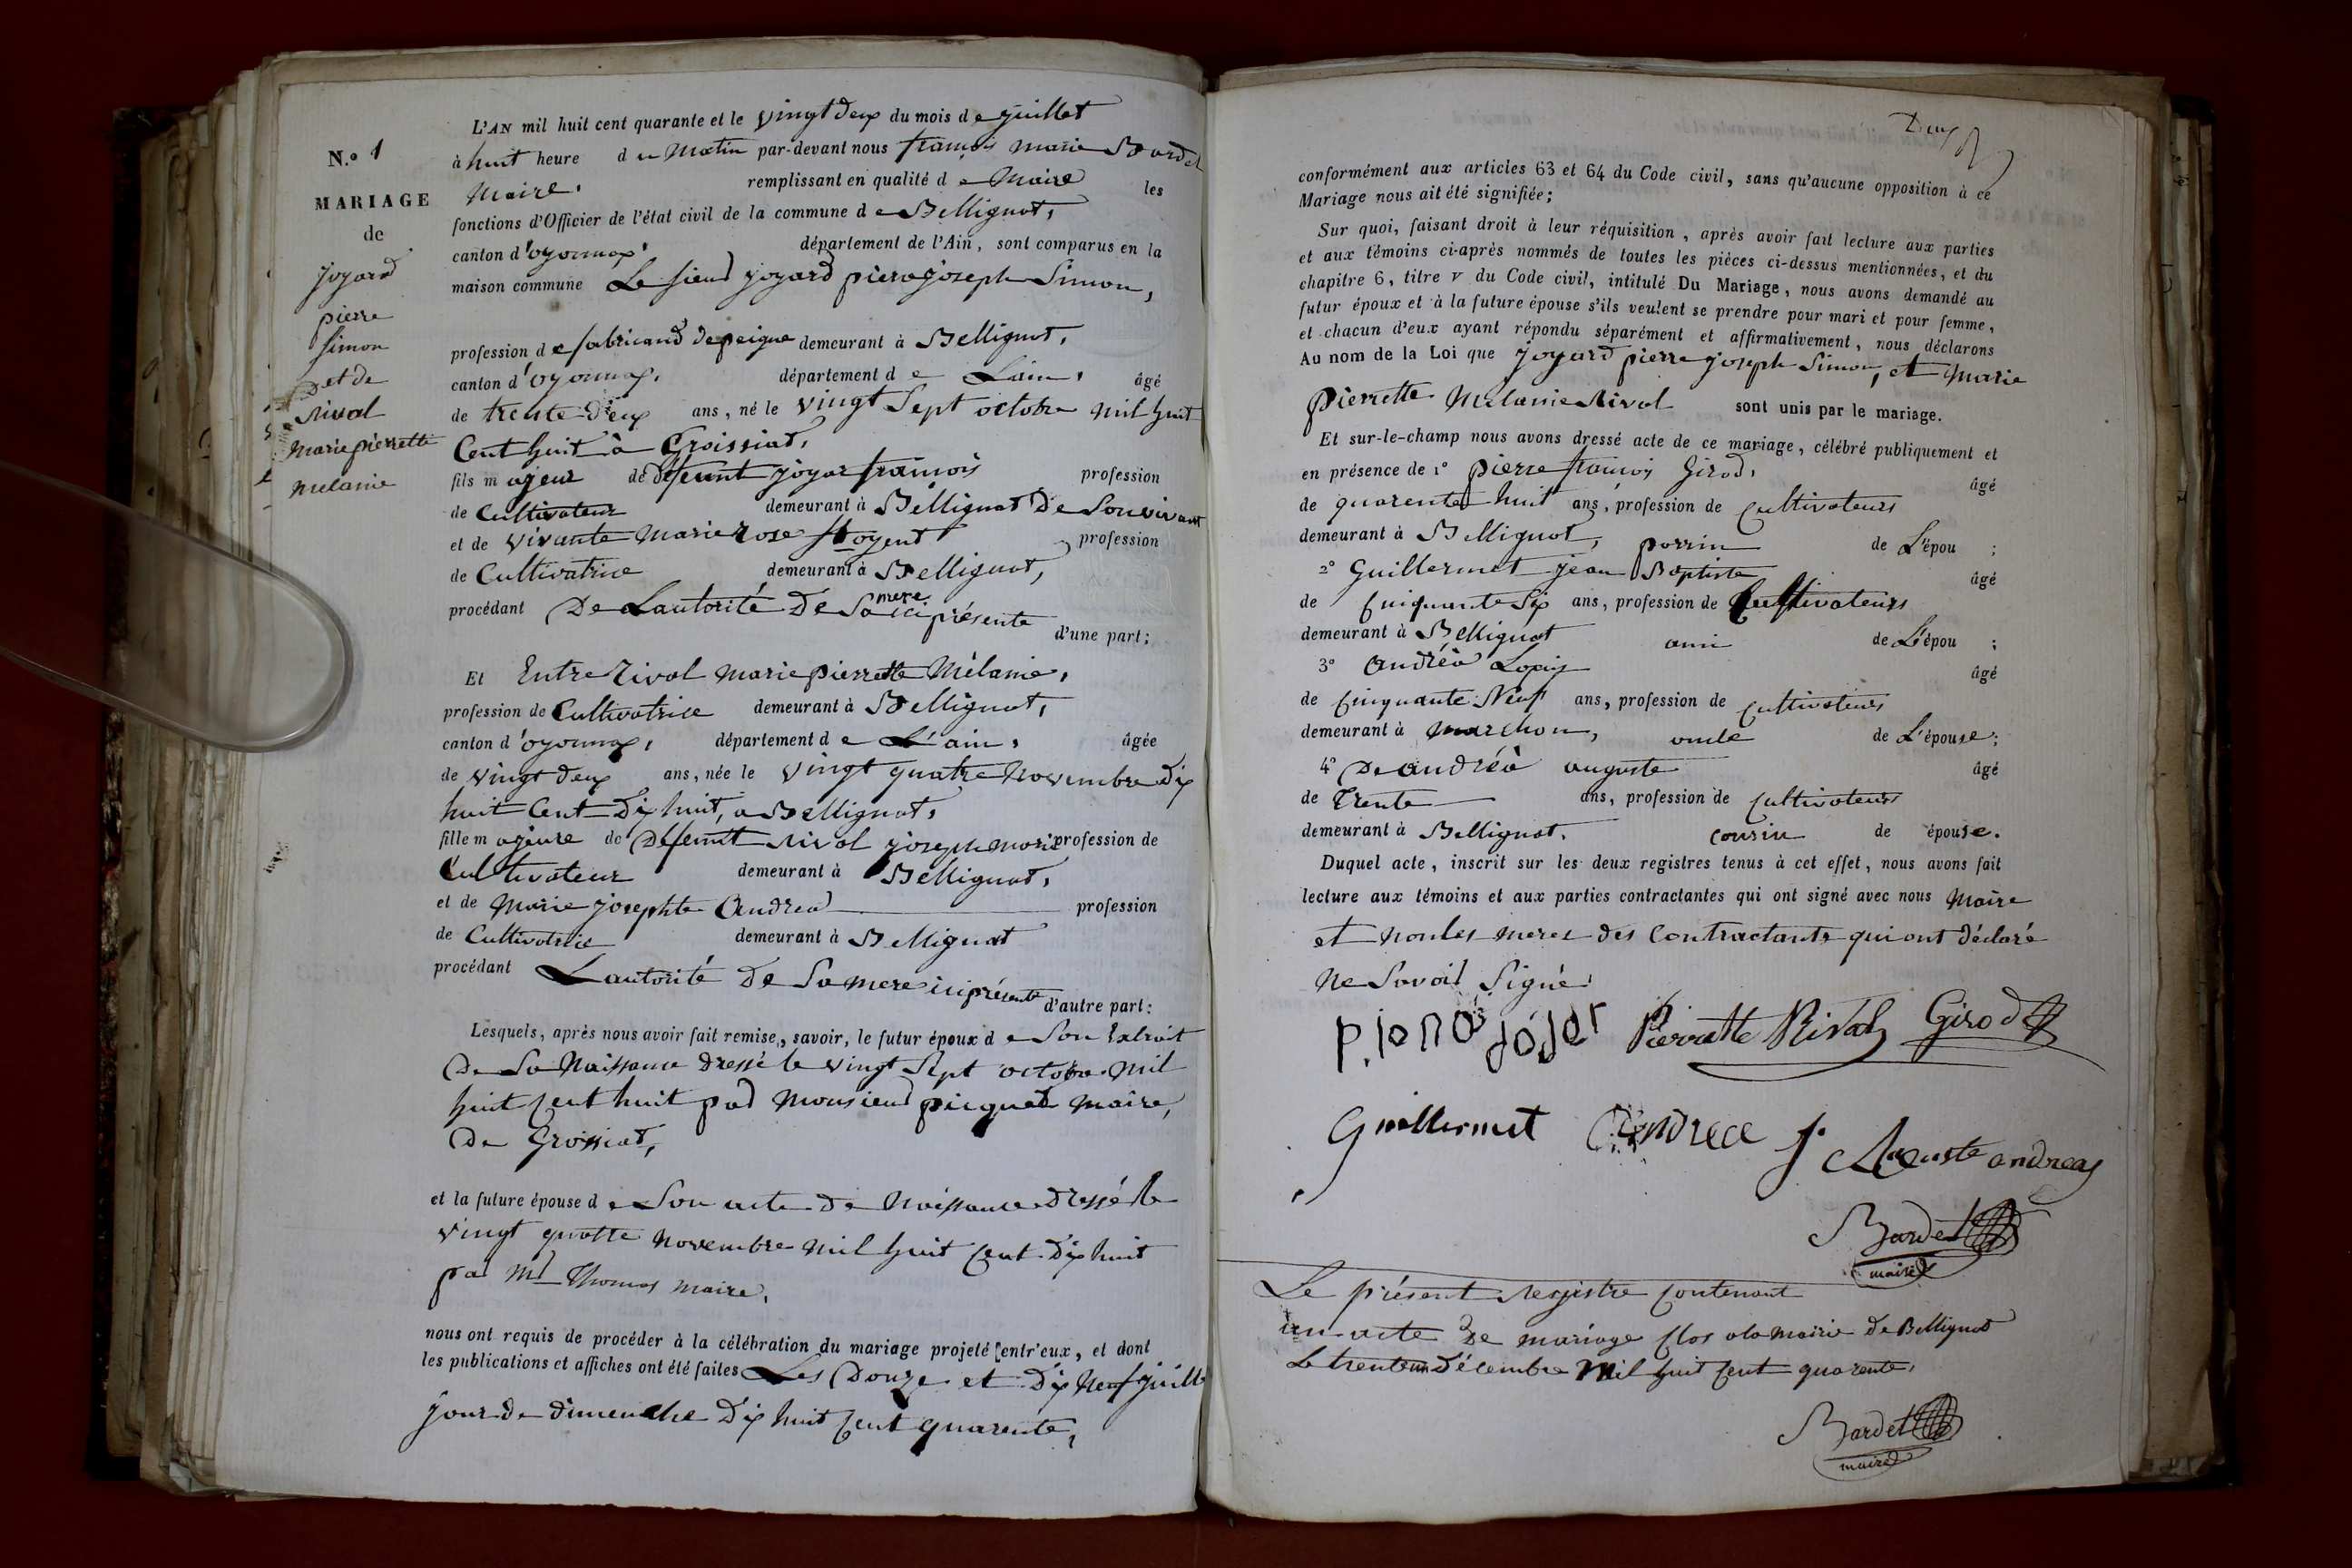 N.º 1
MARIAGE
de
joyard
pierre
simon
et de
Rival
marie pierrette
melanie
L'AN mil huit cent quarante et le vingt deux du mois de juillet
à huit heure du Matin par-devant nous françois marie Bardet
Maire. remplissant en qualité de Maire les
fonctions d'Officier de l'état civil de la commune de Bellignat,
canton d'oyonnax, département de l'Ain, sont comparus en la
maison commune Le sieur joyard pierre joseph Simon,
profession de fabricand de peigne demeurant à Bellignat,
canton d'oyonnax, département de Lain, âgé
de trente deux ans, né le vingt Sept octobre mil huit
Cent huit à Groissiat,
fils majeur de defeunt joyar françois profession
de Cultivateur demeurant à Bellignat De Son vivant
et de vivante Marie Rose profession
de Cultivatrice demeurant à Bellignat,
procédant De Lautorité De Sa mere ici présente
d'une part;
Et Entre Rival marie pierrette Mélanie,
profession de Cultivatrice demeurant à Bellignat,
canton d'oyonnax, département de L'ain, âgée
de vingt deux ans, née le vingt quatre Novembre dix
huit Cent Dix huit, a Bellignat,
fille majeure de Defeunt Rival joseph marie profession de
Cultivateur demeurant à Bellignat,
et de Marie josephte Andrea profession
de Cultivatrice demeurant à Bellignat
procédant Lautorité De Sa mere ici présente d'autre part:
Lesquels, après nous avoir fait remise, savoir, le futur époux de Son Extrait
De Sa Naissance dressé le vingt Sept octobre mil
huit Cent huit par Monsieur picquet maire,
De Groissiat,
et la future épouse de Son acte de Naissance dressé le
vingt quatre novembre mil huit Cent Dix huit
par Mr Thomas maire.
nous ont requis de procéder à la célébration du mariage projeté entr'eux, et dont
les publications et affiches ont été faites Les Douze et Dix Neuf juillet
jour de dimenche Dix huit Cent quarente,
Deux
conformément aux articles 63 et 64 du Code civil, sans qu'aucune opposition à ce
Mariage nous ait été signifiée;
Sur quoi, faisant droit à leur réquisition, après avoir fait lecture aux parties
et aux témoins ci-après nommés de toutes les pièces ci-dessus mentionnées, et du
chapitre 6, titre V du Code civil, intitulé Du Mariage, nous avons demandé au
futur époux et à la future épouse s'ils veulent se prendre pour mari et pour femme,
et chacun d'eux ayant répondu séparément et affirmativement, nous déclarons
Au nom de la Loi que joyard pierre joseph Simon, et marie
pierrette Melanie Rival sont unis par le mariage.
Et sur-le-champ nous avons dressé acte de ce mariage, célébré publiquement et
en présence de 1º pierre françois Girod, âgé
de quarente huit ans, profession de Cultivateurs
demeurant à Bellignat, parrin de L'épou ;
2º Guillermet jean Baptiste âgé
de Cinquante Six ans, profession de Cultivateurs
demeurant à Bellignat ami de L'épou ;
3º Andréa Louis âgé
de Cinquante Neuf ans, profession de Cultivateurs
demeurant à marchon, oncle de L'épouse;
4º De andréa auguste âgé
de Trente ans, profession de Cultivateurs
demeurant à Bellignat. cousin de épouse.
Duquel acte, inscrit sur les deux registres tenus à cet effet, nous avons fait
lecture aux témoins et aux parties contractantes qui ont signé avec nous Maire
et non les meres des Contractants qui ont déclaré
Ne Savoir Signé.
jojar Pierrette Rival Girod
Guillermet Andrea Auguste andreas
Bardet
maire
Le présent Registre Contenant
un acte de mariage Clos a la mairie de Bellignat
Le trente un Décembre Mil huit Cent quarente,
Bardet
maire